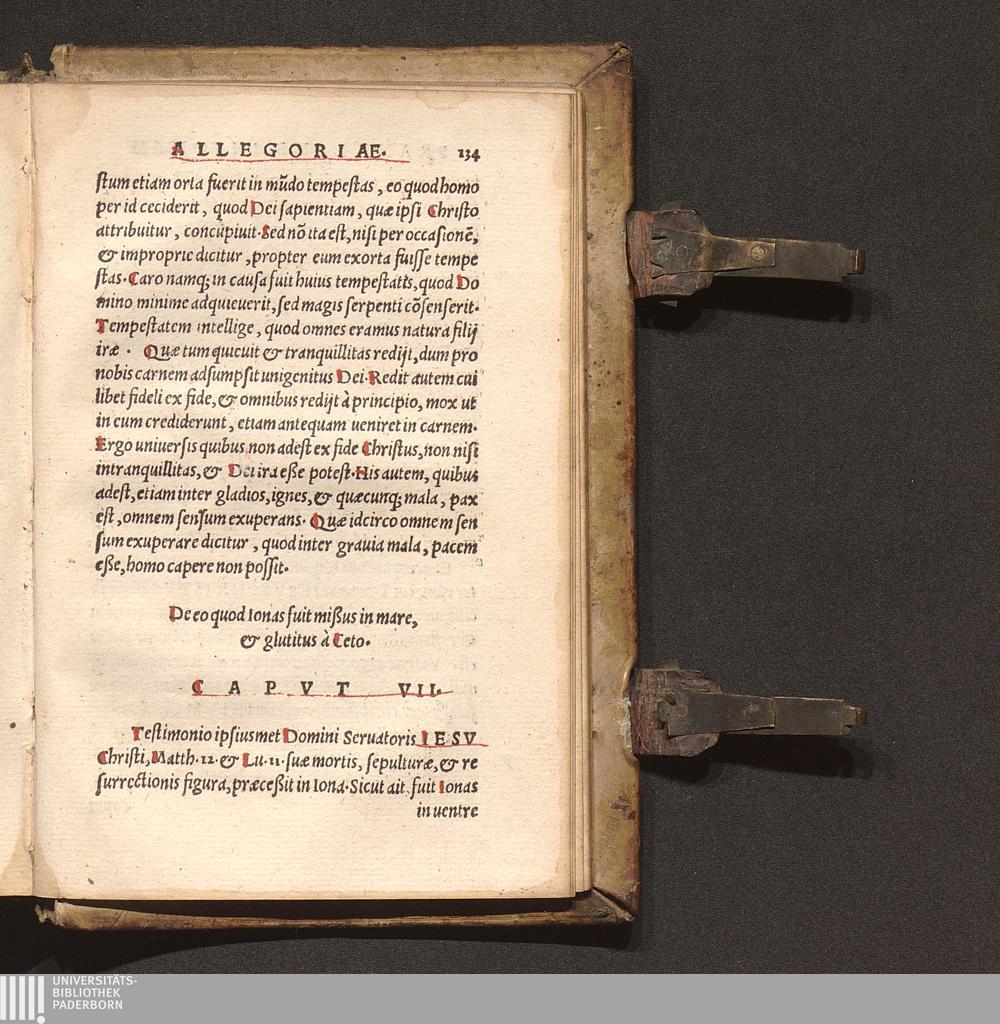 ALLEGORIAE. 134
stum etiam orta fuerit in mũdo tempestas, eo quod homo
per id ceciderit, quod Dei sapientiam, quæ ipsi Christo
attribuitur, concupiuit. Sed nõ ita est, nisi per occasionẽ,
& improprie dicitur, propter eum exorta fuisse tempe
stas. Caro namq; in causa fuit huius tempestatis, quod Do
mino minime adquieuerit, sed magis serpenti cõsenserit.
Tempestatem intellige, quod omnes eramus natura filij
iræ. Quæ tum quieuit & tranquillitas redijt, dum pro
nobis carnem adsumpsit unigenitus Dei. Redit autem cui
libet fideli ex fide, & omnibus redijt à principio, mox ut
in eum crediderunt, etiam antequam ueniret in carnem.
Ergo uniuersis quibus non adest ex fide Christus, non nisi
intranquillitas, & Dei ira eße potest. His autem, quibus
adest, etiam inter gladios, ignes, & quæcunq; mala, pax
est, omnem sensum exuperans. Quæ idcirco omnem sen
sum exuperare dicitur, quod inter grauia mala, pacem
eße, homo capere non possit.
De eo quod Ionas fuit mißus in mare,
& glutitus à Ceto.
CAPVT VII.
Testimonio ipsiusmet Domini Seruatoris IESV
Christi, Matth. 12. & Lu. 11. suæ mortis, sepulturæ, & re
surrectionis figura, præceßit in Iona. Sicut ait, fuit Ionas
in uentre
UNIVERSITÄTS-
BIBLIOTHEK
PADERBORN